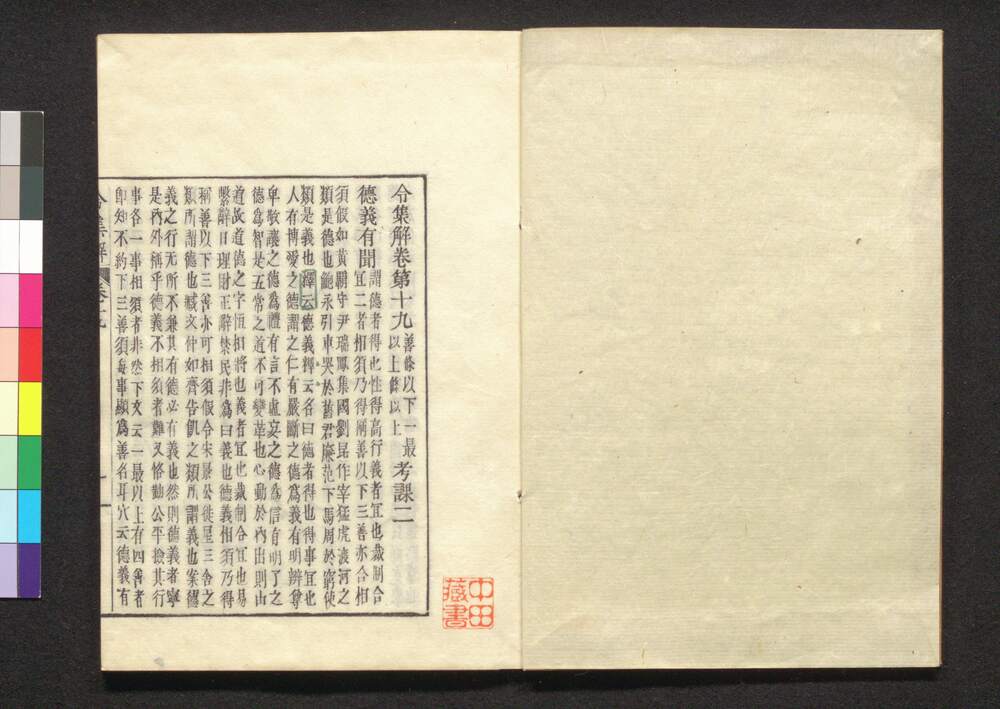 令集解卷第十九
善條以下一最
以上條以上
考課二
德義有聞
謂德者得也性得高行義者宜也裁制合
宜二者相須乃得兩善以下三善亦合相
須假如黃霸守尹瑞鳳集國劉昆作宰猛虎渡河之
類是德也鮑永引車哭於舊君廉范下馬周於窮使
類是義也釋云德義釋云名曰德者得也得事宜也
人有博愛之德謂之仁有嚴斷之德爲義有明辨尊
卑敬讓之德爲禮有言不虛妄之德爲信有明了之
德爲智是五常之道不可變革也心動於內出則由
道故道德之字恒相將也義者宜也裁制合宜也易
繫辭曰理財正辭禁民非爲曰義也德義相須乃得
稱善以下三善亦可相須假令宋景公徙星三舍之
類所謂德也臧文仲如齊告飢之類所謂義也案德
義之行无所不兼其有德必有義也然則德義者寧
是內外稱乎德義不相須者難又恪勤公平撿其行
事各一事相須者非然下文云一最以上有四善者
卽知不約下三善須每事顯爲善名耳穴云德義有
令集解 卷十九 一
中田
藏書